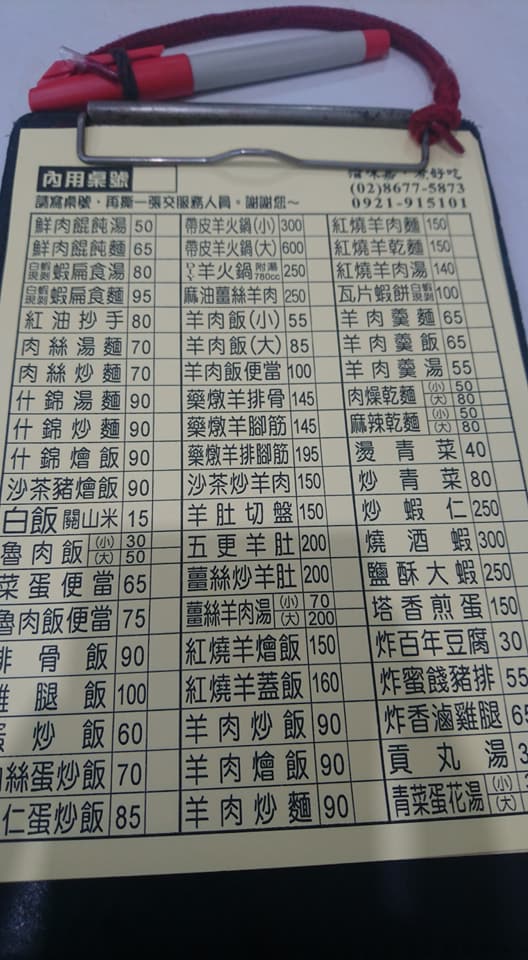 內用桌號
好吃
(02)8677-5873
請寫桌號，再撕一張交服務人員。謝謝您～
0921-915101
鮮肉餛飩湯 50
鮮肉餛飩麵 65
白蝦現剝 蝦扁食湯 80
白蝦現剝 蝦扁食麵 95
紅油抄手 80
肉絲湯麵 70
肉絲炒麵 70
什錦湯麵 90
什錦炒麵 90
什錦燴飯 90
沙茶豬燴飯 90
白飯 關山米 15
魯肉飯 (小) 30 (大) 50
菜蛋便當 65
魯肉飯便當 75
排骨飯 90
雞腿飯 100
蛋炒飯 60
肉絲蛋炒飯 70
仁蛋炒飯 85
帶皮羊火鍋(小) 300
帶皮羊火鍋(大) 600
DIY 羊火鍋 附湯780cc 250
麻油薑絲羊肉 250
羊肉飯(小) 55
羊肉飯(大) 85
羊肉飯便當 100
藥燉羊排骨 145
藥燉羊腳筋 145
藥燉羊排腳筋 195
沙茶炒羊肉 150
羊肚切盤 150
五更羊肚 200
薑絲炒羊肚 200
薑絲羊肉湯 (小) 70 (大) 200
紅燒羊燴飯 150
紅燒羊蓋飯 160
羊肉炒飯 90
羊肉燴飯 90
羊肉炒麵 90
紅燒羊肉麵 150
紅燒羊乾麵 150
紅燒羊肉湯 140
瓦片蝦餅 白蝦現剝 100
羊肉羹麵 65
羊肉羹飯 65
羊肉羹湯 55
肉燥乾麵 (小) 50 (大) 80
麻辣乾麵 (小) 50 (大) 80
燙青菜 40
炒青菜 80
炒蝦仁 250
燒酒蝦 300
鹽酥大蝦 250
塔香煎蛋 150
炸百年豆腐 30
炸蜜餞豬排 55
炸香滷雞腿 65
貢丸湯
青菜蛋花湯 (小) (大)